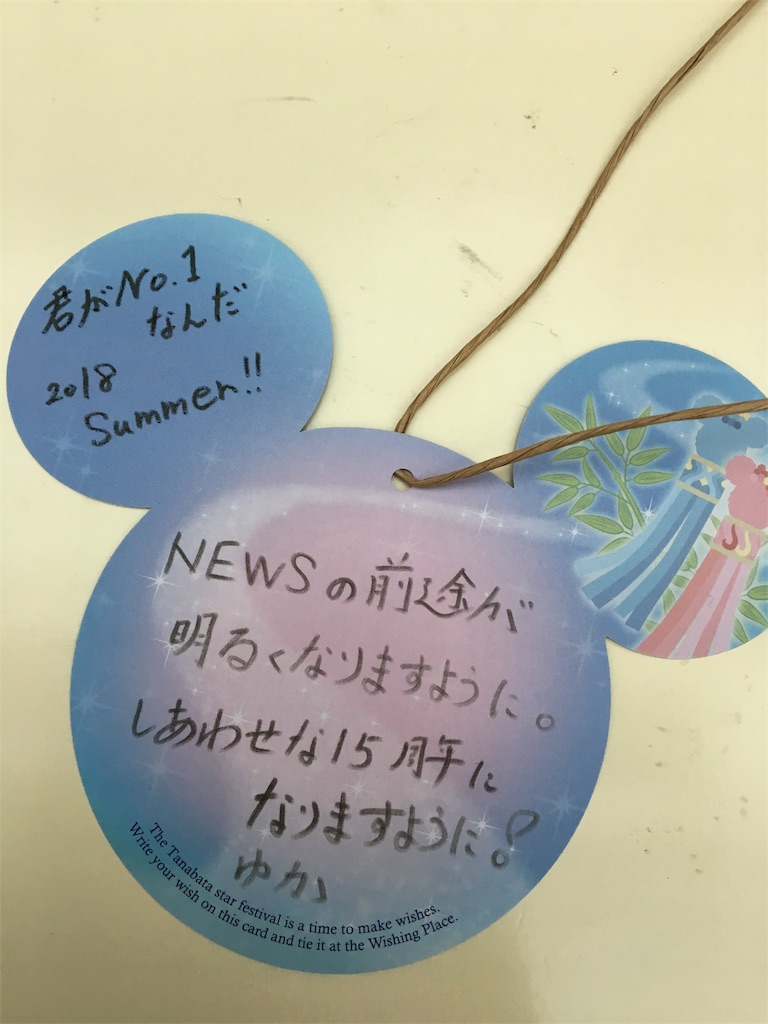 君がNo.1
なんだ
2018
Summer!!
NEWSの前途が
明るくなりますように。
しあわせな15周年に
なりますように!
ゆか
The Tanabata star festival is a time to make wishes.
Write your wish on this card and tie it at the Wishing Place.